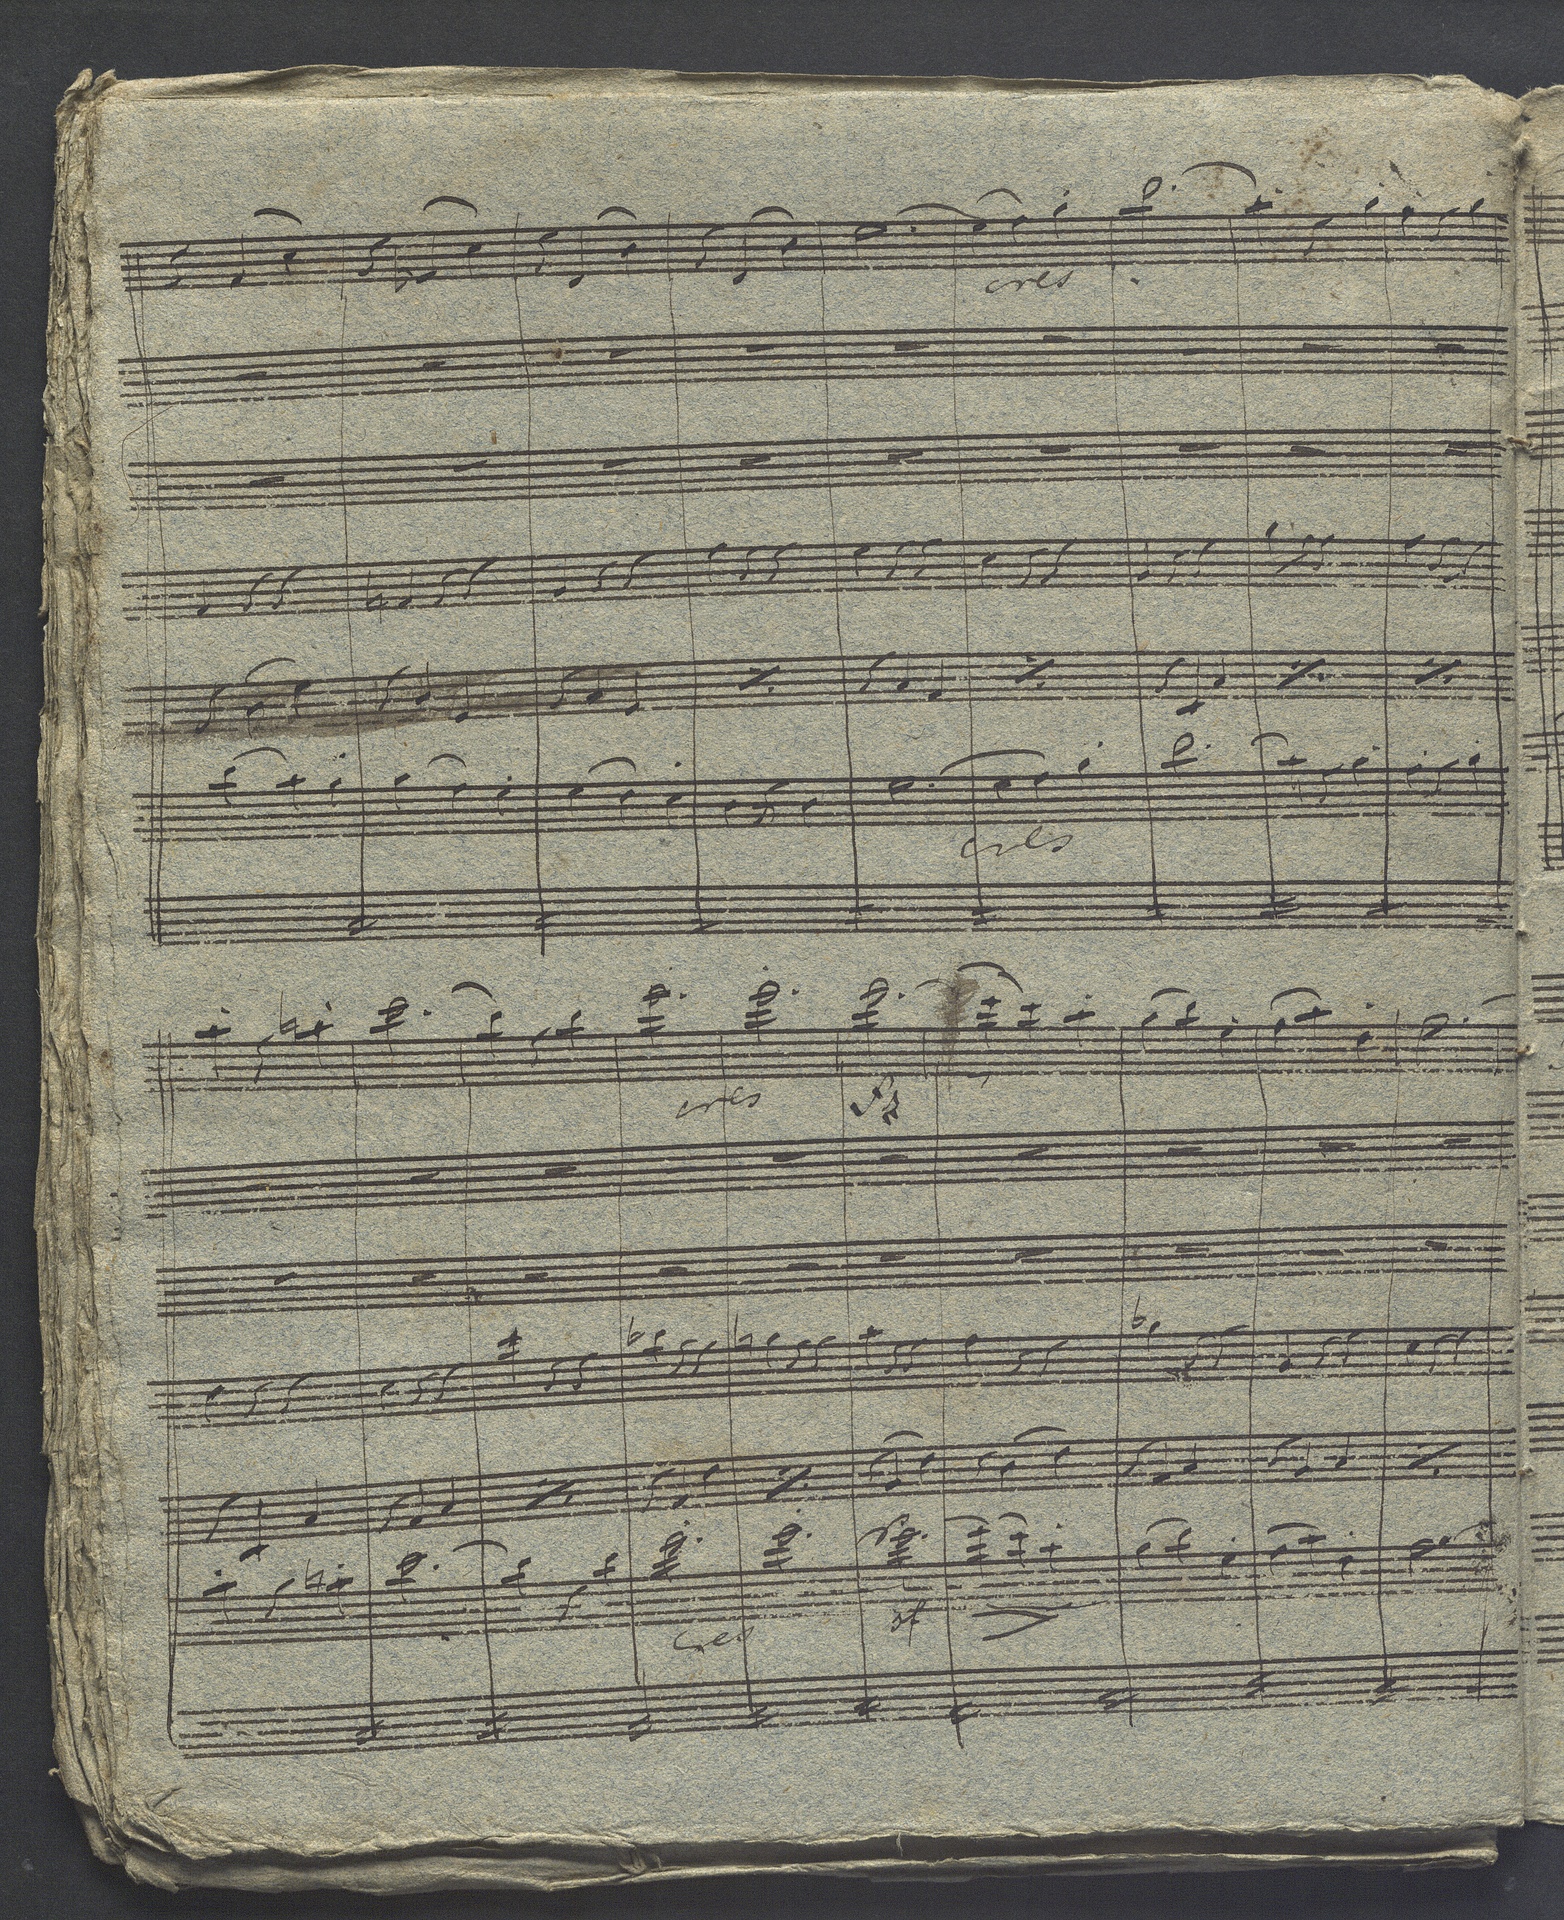 cres
cres
cres
cres
sf